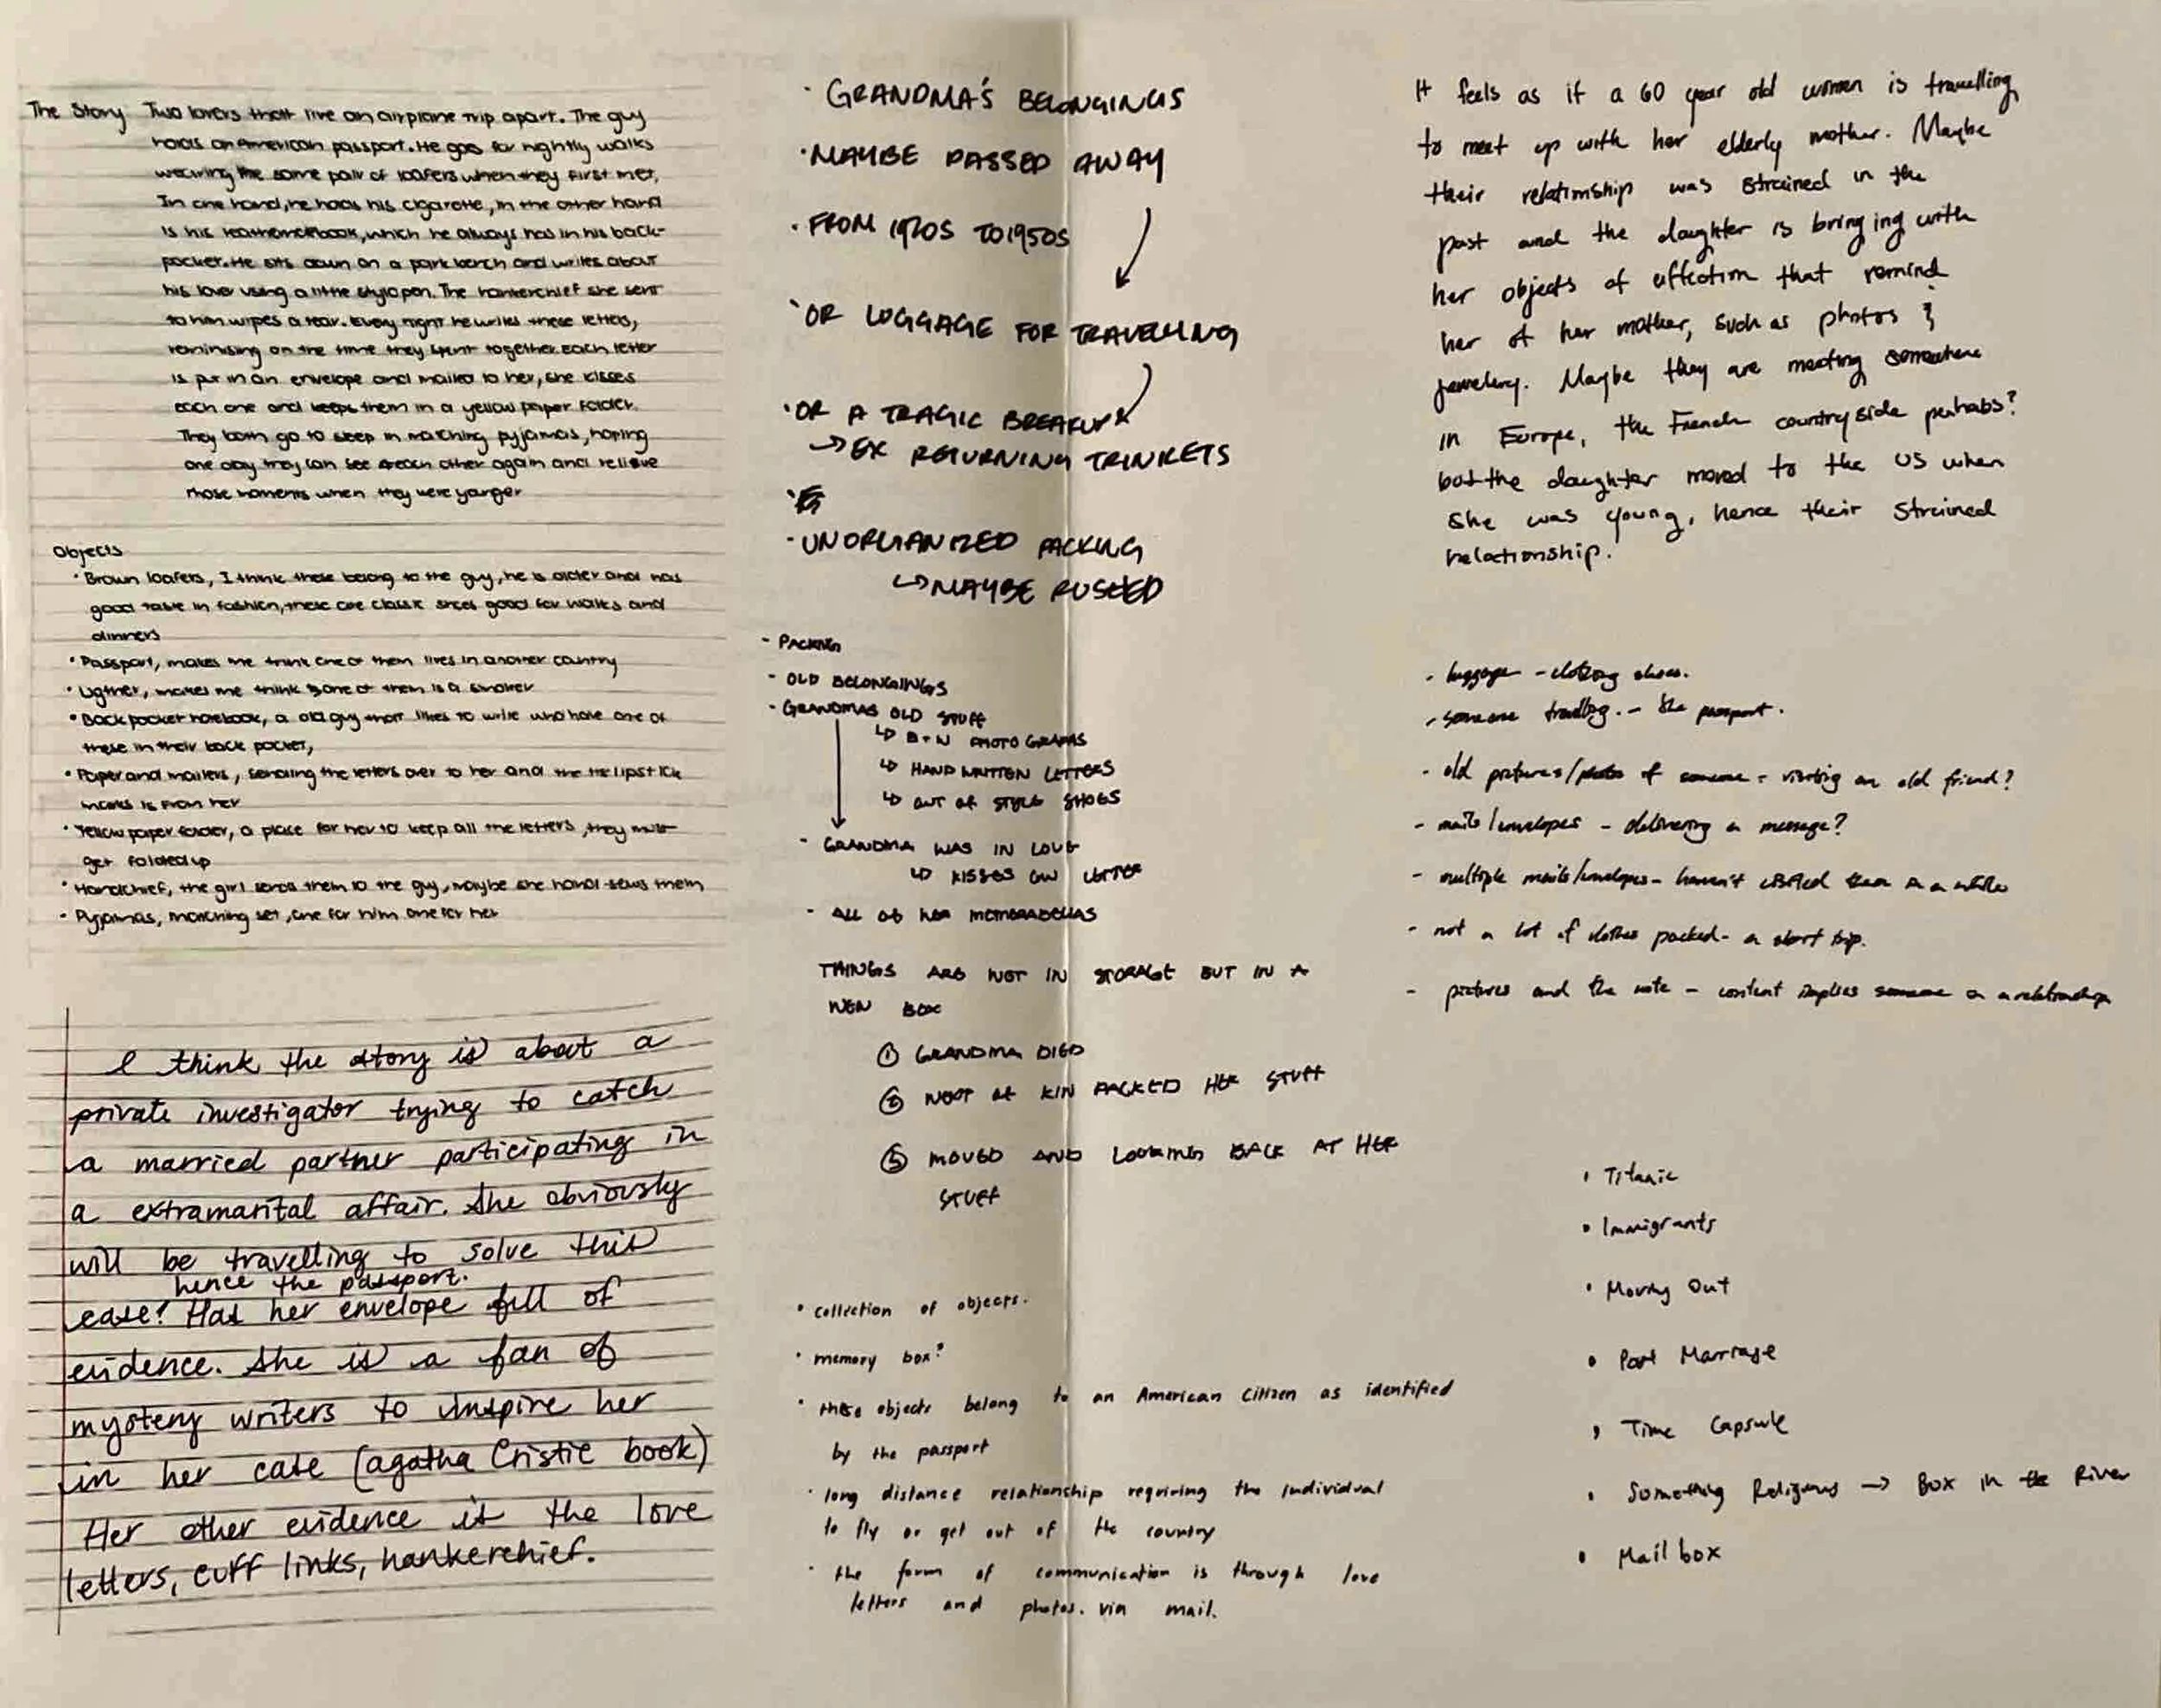 The Story Two lovers that live an airplane trip apart. The guy
holds an American passport. He goes for nightly walks
wearing the same pair of loafers when they first met.
In one hand, he holds his cigarette, in the other hand
is his leather notebook, which he always has in his back-
pocket. He sits down on a park bench and writes about
his lover using a little stylo pen. The hankerchief she sent
to him wipes a tear. Every night he writes these letters,
reminising on the time they spent together. Each letter
is put in an envelope and mailed to her, she kisses
each one and keeps them in a yellow paper folder.
They both go to sleep in matching pyjamas, hoping
one day they can see each other again and relieve
those moments when they were younger
Objects
• Brown loafers, I think these belong to the guy, he is older and has
good taste in fashion, these are classic shoes good for walks and
dinners
• Passport, makes me think one of them lives in another country
• Lighter, makes me think one of them is a smoker
• Back pocket notebook, a old guy that likes to write who have one of
these in their back pocket,
• Paper and mailers, sending the letters over to her and the lipstick
marks is from her
• Yellow paper folder, a place for her to keep all the letters, they must
get folded up
• Handchief, the girl sends them to the guy, maybe she hand-sews them
• Pyjamas, matching set, one for him one for her
I think the story is about a
private investigator trying to catch
a married partner participating in
a extramarital affair. She obviously
will be travelling to solve this
hence the passport.
case! Has her envelope full of
evidence. She is a fan of
mystery writers to inspire her
in her case (agatha Cristie book)
Her other evidence is the love
letters, cuff links, hankerchief.
• GRANDMA'S BELONGINGS
• MAYBE PASSED AWAY
• FROM 1920S TO 1950S
• OR LUGGAGE FOR TRAVELLING
• OR A TRAGIC BREAKUP
→ EX RETURNING TRINKETS
• UNORGANIZED PACKING
↳ MAYBE RUSHED
- PACKING
- OLD BELONGINGS
- GRANDMAS OLD STUFF
↳ B+W PHOTOGRAPHS
↳ HAND WRITTEN LETTERS
↳ OUT OF STYLE SHOES
- GRANDMA WAS IN LOVE
↳ KISSES ON LETTER
- ALL OF HER MEMORABELIAS
THINGS ARE NOT IN STORAGE BUT IN A
NEW BOX
① GRANDMA DIED
② NEXT OF KIN PACKED HER STUFF
③ MOVED AND LOOKING BACK AT HER
STUFF
• collection of objects.
• memory box?
• these objects belong to an American citizen as identified
by the passport
• long distance relationship requiring the individual
to fly or get out of the country
• the form of communication is through love
letters and photos. via mail.
It feels as if a 60 year old women is travelling
to meet up with her elderly mother. Maybe
their relationship was strained in the
past and the daughter is bringing with
her objects of affection that remind
her of her mother, such as photos &
jewelery. Maybe they are meeting somewhere
in Europe, the French countryside perhabs?
but the daughter moved to the US when
she was young, hence their strained
relationship.
- luggage - clothing shoes.
- someone travelling. - the passport.
- old pictures/photos of someone = visiting an old friend?
- mails/envelopes - delivering a message?
- multiple mails/envelopes - haven't visited them in a while
- not a lot of clothes packed - a short trip.
- pictures and the note - content implies someone in a relationship
• Titanic
• Immigrants
• Moving Out
• Post Marriage
• Time Capsule
• Something Religious → Box in the River
• Mail box